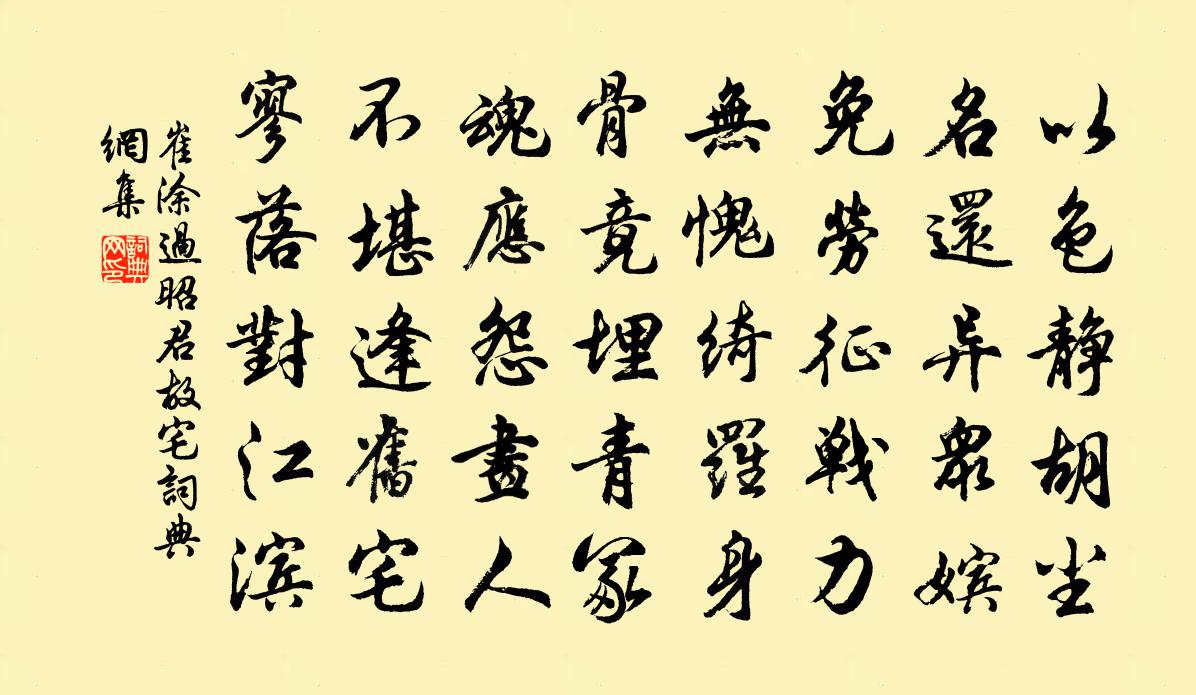 以色静胡尘
名還异眾嬪
免勞征戰力
無愧綺羅身
骨竟埋青冢
魂應怨畫人
不堪逢舊宅
寥落對江滨
崔涂過昭君故宅詞典
網集
詞典
网印